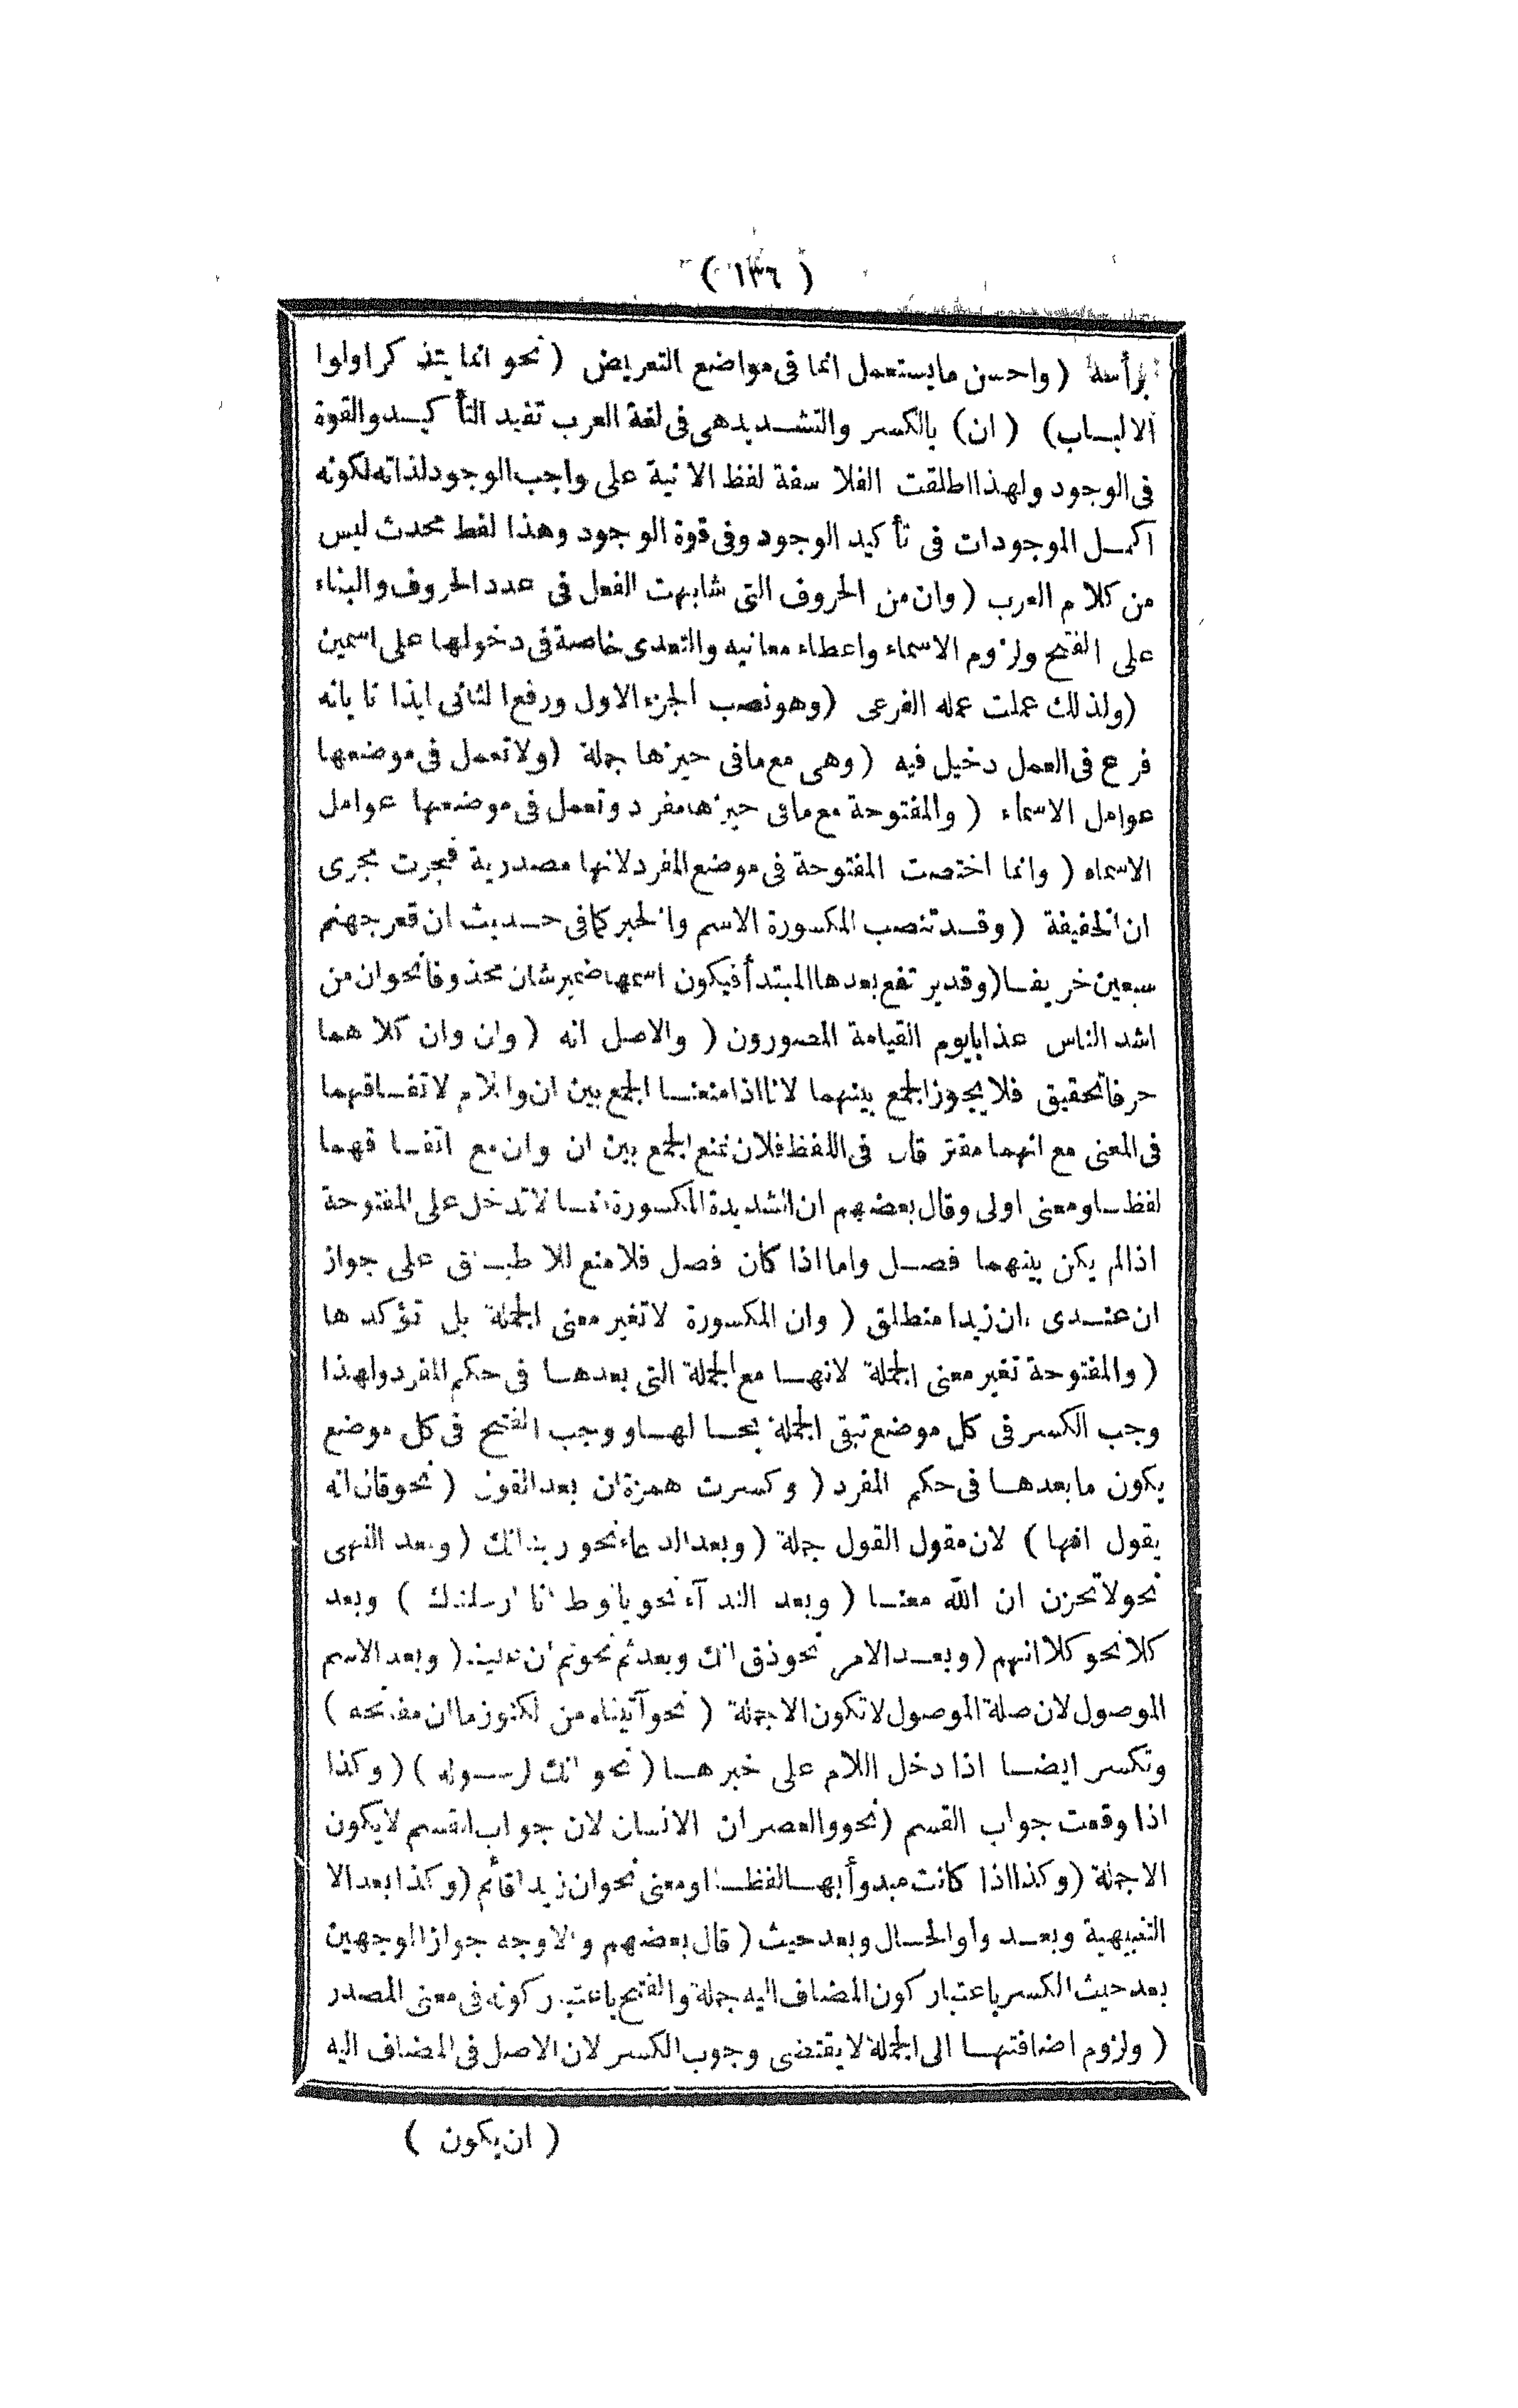 ( ١٣٦ )
برأسه ( واحسن مايستعمل انما فى مواضع التعريض ( نحو انما يتذكر اولوا
الالباب ) ( ان ) بالكسر والتشديد هى فى لغة العرب تفيد التأكيد والقوة
فى الوجود ولهذا اطلقت الفلاسفة لفظ الانية على واجب الوجود لذاته لكونه
اكمل الموجودات فى تأكيد الوجود وفى قوة الوجود وهذا لفظ محدث ليس
من كلام العرب ( وان من الحروف التى شابهت الفعل فى عدد الحروف والبناء
على الفتح ولزوم الاسماء واعطاء معانيه والتعدى خاصة فى دخولها على اسمين
( ولذلك عملت عمله الفرعى ( وهو نصب الجزء الاول ورفع الثانى ايذانا بانه
فرع فى العمل دخيل فيه ( وهى مع مافى حيزها جملة ( ولا تعمل فى موضعها
عوامل الاسماء ( والمفتوحة مع مافى حيزها مفرد وتعمل فى موضعها عوامل
الاسماء ( وانما اختصت المفتوحة فى موضع المفرد لانها مصدرية فجرت مجرى
ان الخفيفة ( وقد تنصب المكسورة الاسم والخبر كما فى حديث ان قعر جهنم
سبعين خريفا ( وقد يرتفع بعدها المبتدأ فيكون اسمها ضمير شان محذوفا نحو ان من
اشد الناس عذابا يوم القيامة المصورون ( والاصل انه ( وان وان كلاهما
حرفا تحقيق فلا يجوز الجمع بينهما لانا اذا منعنا الجمع بين ان واللام لاتفاقهما
فى المعنى مع انهما مفترقان فى اللفظ فلان نمنع الجمع بين ان وان مع اتفاقهما
لفظا ومعنى اولى وقال بعضهم ان الشديدة المكسورة انما لاتدخل على المفتوحة
اذا لم يكن بينهما فصل واما اذا كان فصل فلا منع للاطباق على جواز
ان عندى ان زيدا منطلق ( وان المكسورة لاتغير معنى الجملة بل تؤكدها
( والمفتوحة تغير معنى الجملة لانها مع الجملة التى بعدها فى حكم المفرد ولهذا
وجب الكسر فى كل موضع تبقى الجملة بحالها ووجب الفتح فى كل موضع
يكون مابعدها فى حكم المفرد ( وكسرت همزة ان بعد القول ( نحو قال انه
يقول انها ) لان مقول القول جملة ( وبعد الدعاء نحو ربنا انك ( وبعد النهى
نحو لاتحزن ان الله معنا ( وبعد الندآء نحو يالوط انا ارسلناك ) وبعد
كلا نحو كلا انهم ( وبعد الامر نحو ذق انك وبعد ثم نحو ثم ان علينا ( وبعد الاسم
الموصول لان صلة الموصول لاتكون الا جملة ( نحو آتيناه من الكنوز ما ان مفاتحه )
وتكسر ايضا اذا دخل اللام على خبرها ( نحو انك لرسوله ) ( وكذا
اذا وقعت جواب القسم ( نحو والعصر ان الانسان لان جواب القسم لايكون
الا جملة ( وكذا اذا كانت مبدوأ بها لفظا او معنى نحو ان زيدا قائم ( وكذا بعد الا
التنبيهية وبعد واو الحال وبعد حيث ( قال بعضهم والاوجه جواز الوجهين
بعد حيث الكسر باعتبار كون المضاف اليه جملة والفتح باعتبار كونه فى معنى المصدر
( ولزوم اضافتها الى الجملة لايقتضى وجوب الكسر لان الاصل فى المضاف اليه
( ان يكون )